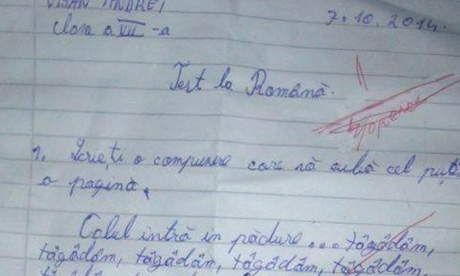 VIȘAN ANDREI
7.10.2014
clasa a VII -a
Test la Română.
1. Scrieți o compunere care să aibă cel puț
o pagină.
Calul intră in pădure ... tăgădăm,
tăgădăm, tăgădăm, tăgădăm, tăgădăm